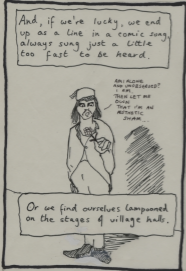 And, if we're lucky, we end
up as a line in a comic song,
always sung just a little
too fast to be heard.
AM I ALONE
AND UNOBSERVED?
I AM.
THEN LET ME
OWN
THAT I'M AN
AESTHETIC
SHAM...
Or we find ourselves lampooned
on the stages of village halls.